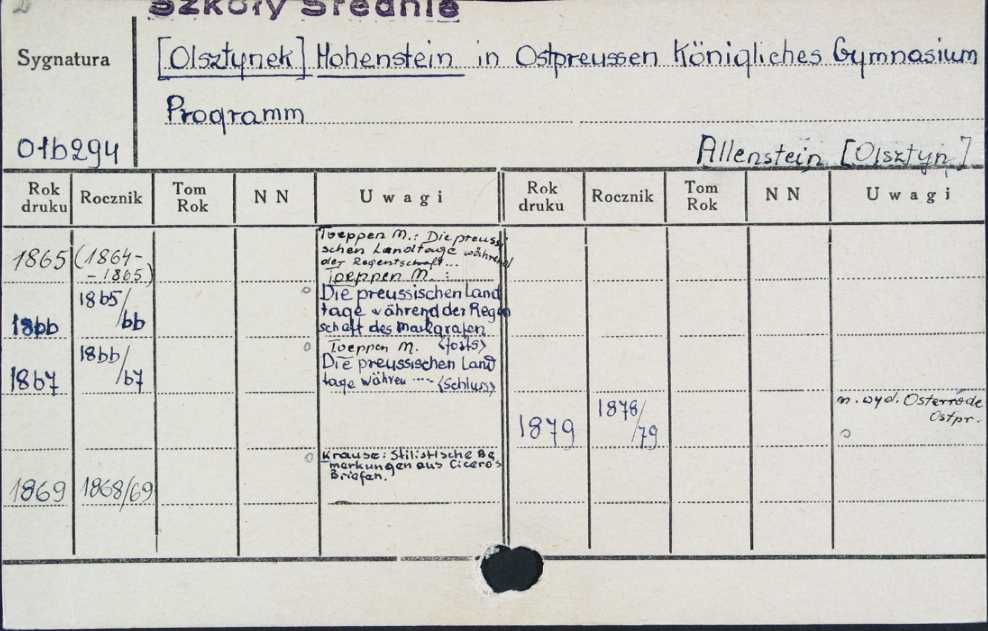 Szkoły Średnie
Sygnatura
[Olsztynek] Hohenstein in Ostpreussen Königliches Gymnasium
Programm
01b294
Allenstein [Olsztyn]
Rok druku Rocznik Tom Rok N N Uwagi Rok druku Rocznik Tom Rok N N Uwagi
1865 (1864-
-1865)
Toeppen M.: Die preussi
schen Landtage während
der Regentschaft...
1866 1865/
66
Toeppen M.:
Die preussischen Land
tage während der Regen
schaft des Markgrafen
(forts)
1867 1866/
67
Toeppen M.
Die preussischen Land
tage währen ....
(Schluss)
1879 1878/
79
m. wyd. Osterrode
Ostpr.
1869 1868/69
Krause: Stilistische Be
merkungen aus Cicero's
Briefen.